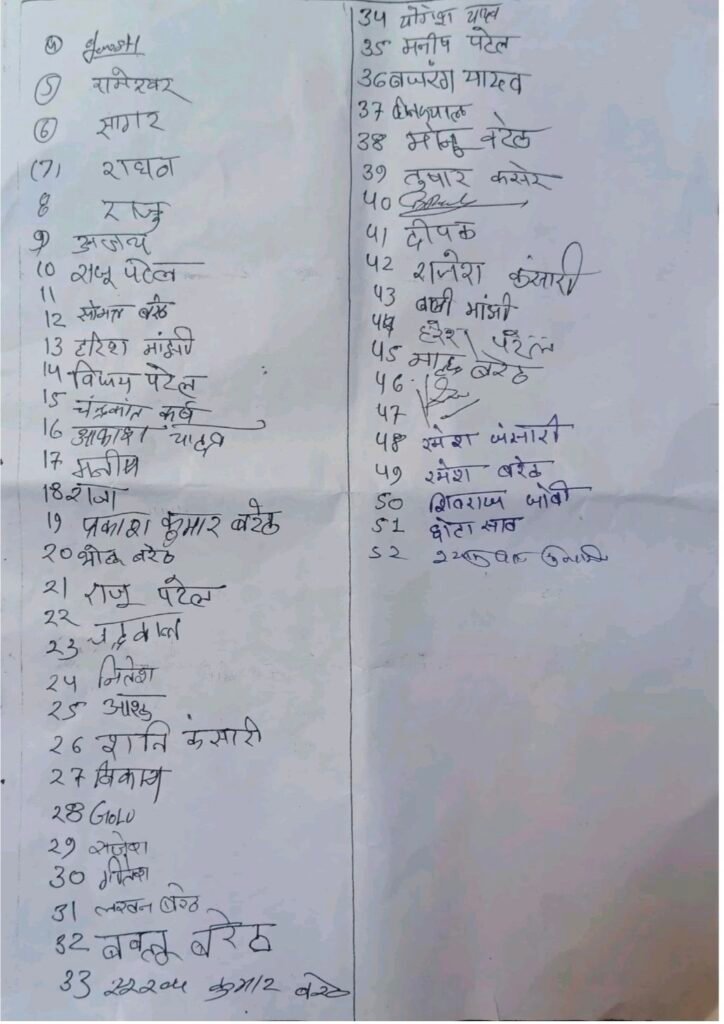 4
5 रामेश्वर
6 सागर
(7) राघव
8 राजु
9 अजय
10 राजू पटेल
11
12 सोमन बरेठ
13 हरिश मांझी
14 विजय पटेल
15 चंद्रकांत कर्ष
16 आकाश यादव
17 मनीष
18 राजा
19 प्रकाश कुमार बरेठ
20 भोलू बरेठ
21 राजू पटेल
22
23
24 नितेश
25 आशु
26 शान्ति कंसारी
27 विकाश
28 GOLU
29 राजेश
30
31 लखन बरेठ
32 बबलू बरेठ
33 कुमार बरेठ
34 योगेश यादव
35 मनीष पटेल
36 बजरंग यादव
37 दीनदयाल
38 मोनू पटेल
39 तुषार कसेर
40
41 दीपक
42 राजेश कंसारी
43 मांझी
44 हरेश पटेल
45 बरेठ
46
47
48 रमेश कंसारी
49 रमेश बरेठ
50 शिवराज जोशी
51 छोटा साव
52